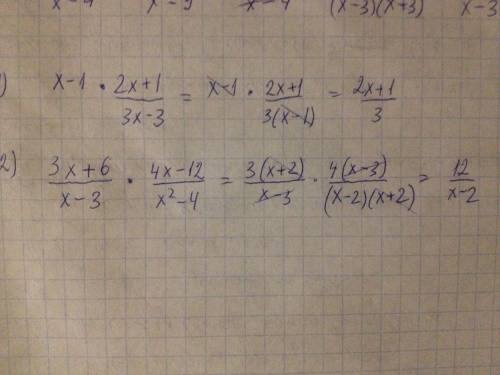 x-4 x-9 x-4 (x-3)(x+3) x-3
1) x-1 · 2x+1/3x-3 = x-1 · 2x+1/3(x-1) = 2x+1/3
2) 3x+6/x-3 · 4x-12/x²-4 = 3(x+2)/x-3 · 4(x-3)/(x-2)(x+2) = 12/x-2